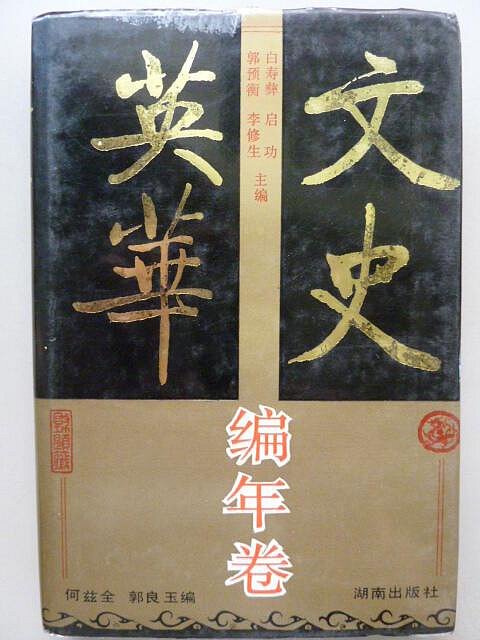 文史
英華
白寿彝 启功
郭预衡 李修生 主编
编年卷
何兹全 郭良玉编
湖南出版社